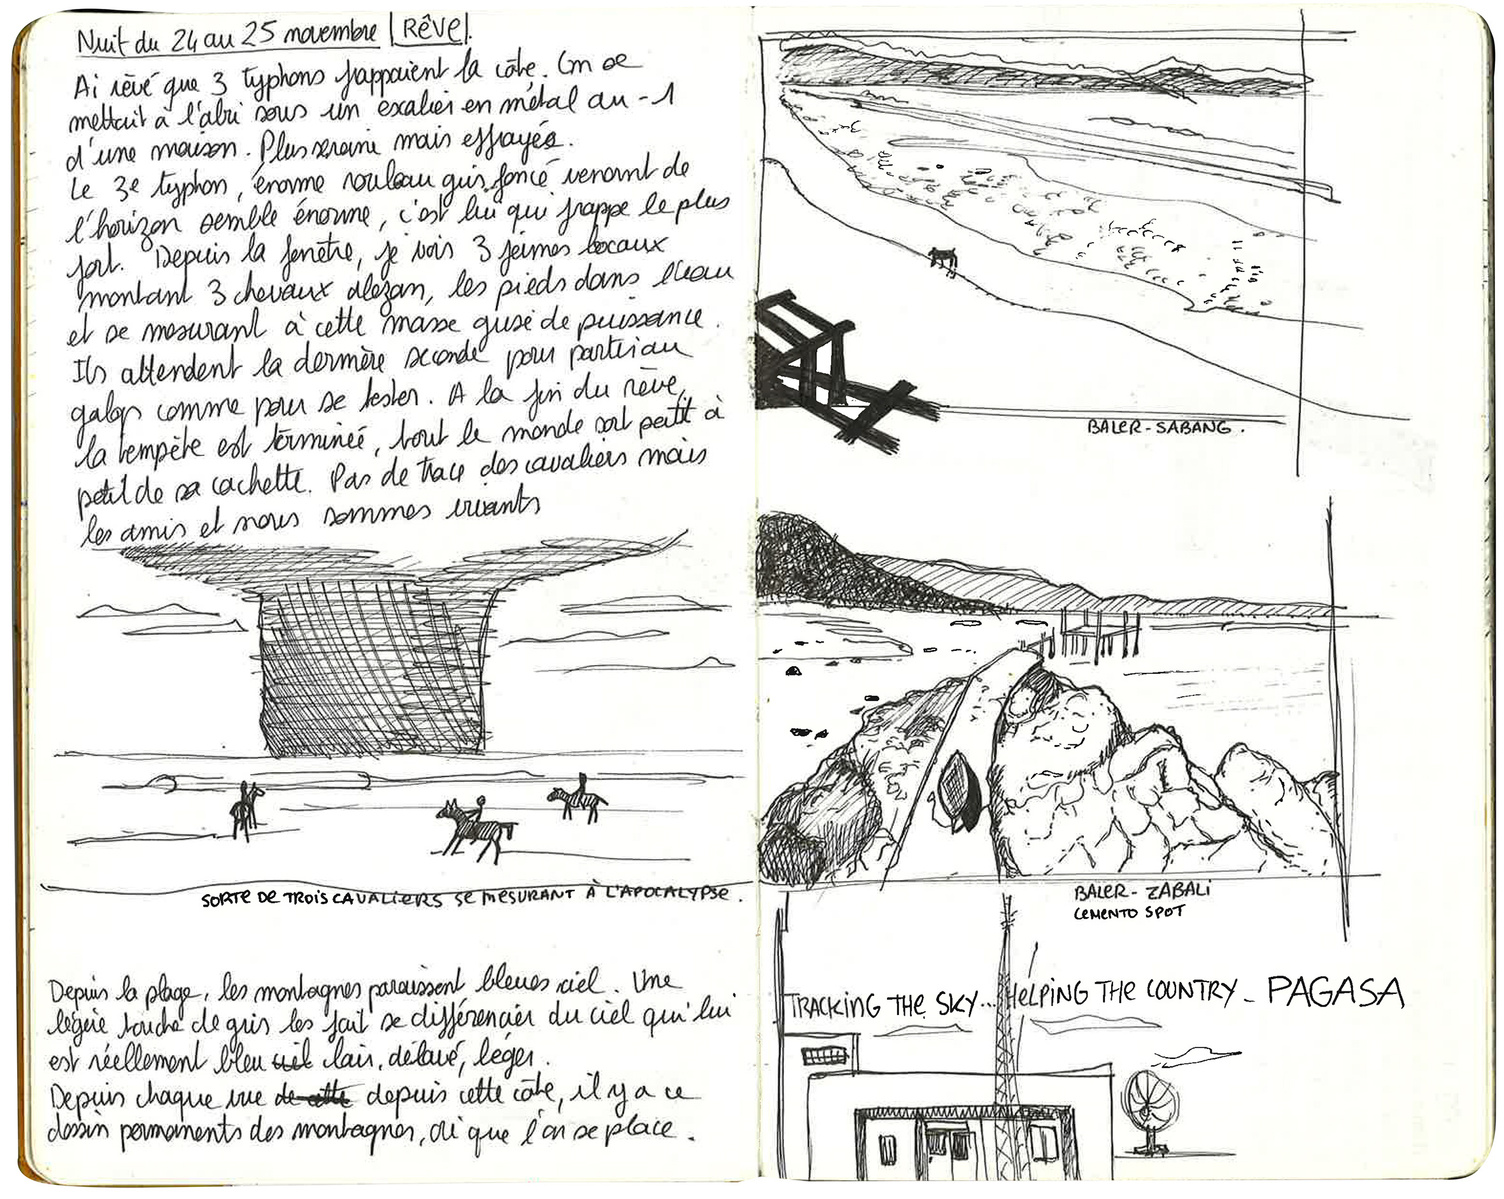 Nuit du 24 au 25 novembre RÊVE.
Ai rêvé que 3 typhons frappaient la côte. On se
mettait à l'abri sous un escalier en métal au -1
d'une maison. Plus sereine mais effrayée.
Le 3e typhon, énorme rouleau gris foncé venant de
l'horizon semble énorme, c'est lui qui frappe le plus
fort. Depuis la fenêtre, je vois 3 jeunes locaux
montant 3 chevaux alezan, les pieds dans l'eau
et se mesurant à cette masse grise de puissance.
Ils attendent la dernière seconde pour partir au
galop comme pour se tester. A la fin du rêve,
la tempête est terminée, tout le monde sort petit à
petit de sa cachette. Pas de trace des cavaliers mais
les amis et nous sommes vivants
SORTE DE TROIS CAVALIERS SE MESURANT À L'APOCALYPSE.
Depuis la plage, les montagnes paraissent bleues ciel. Une
légère touche de gris les fait se différencier du ciel qui lui
est réellement bleu ciel clair, délavé, léger.
Depuis chaque vue de cette depuis cette côte, il y a ce
dessin permanents des montagnes, où que l'on se place.
BALER-SABANG.
BALER - ZABALI
CEMENTO SPOT
TRACKING THE SKY... HELPING THE COUNTRY - PAGASA